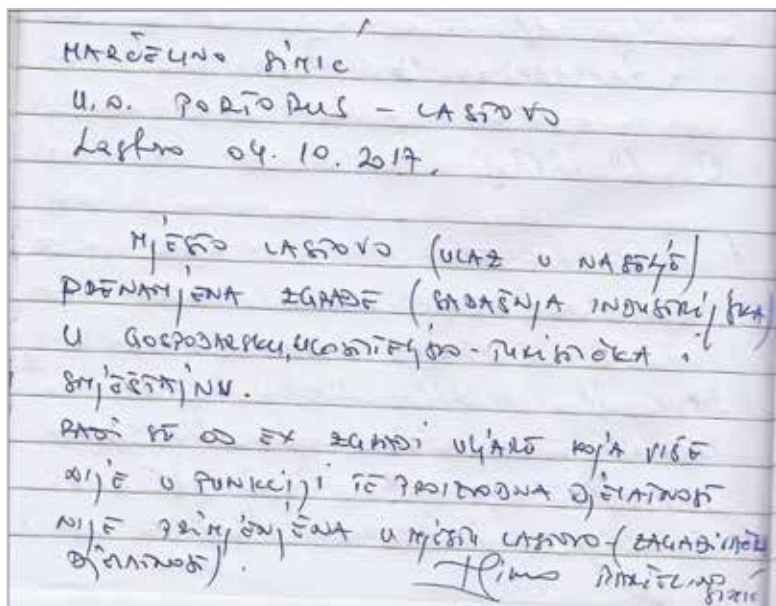 MARČELINO SIMIC
U.O. PORTORUS - LASTOVO
Lastovo 04. 10. 2017.
MJESTO LASTOVO (ULAZ U NASELJE)
PRENAMJENA ZGRADE (SADAŠNJA INDUSTRIJSKA)
U GOSPODARSKU, UGOSTITELJSKO-TURISTIČKA i
SMJEŠTAJNU.
RADI SE OD EX ZGRADI ULJARE KOJA VIŠE
NIJE U FUNKCIJI TE PROIZVODNA DJELATNOST
NIJE PRIMJENJENA U MJESTU LASTOVO - (ZAGAĐIVAČKA
DJELATNOST).
MARČELINO
SIMIC